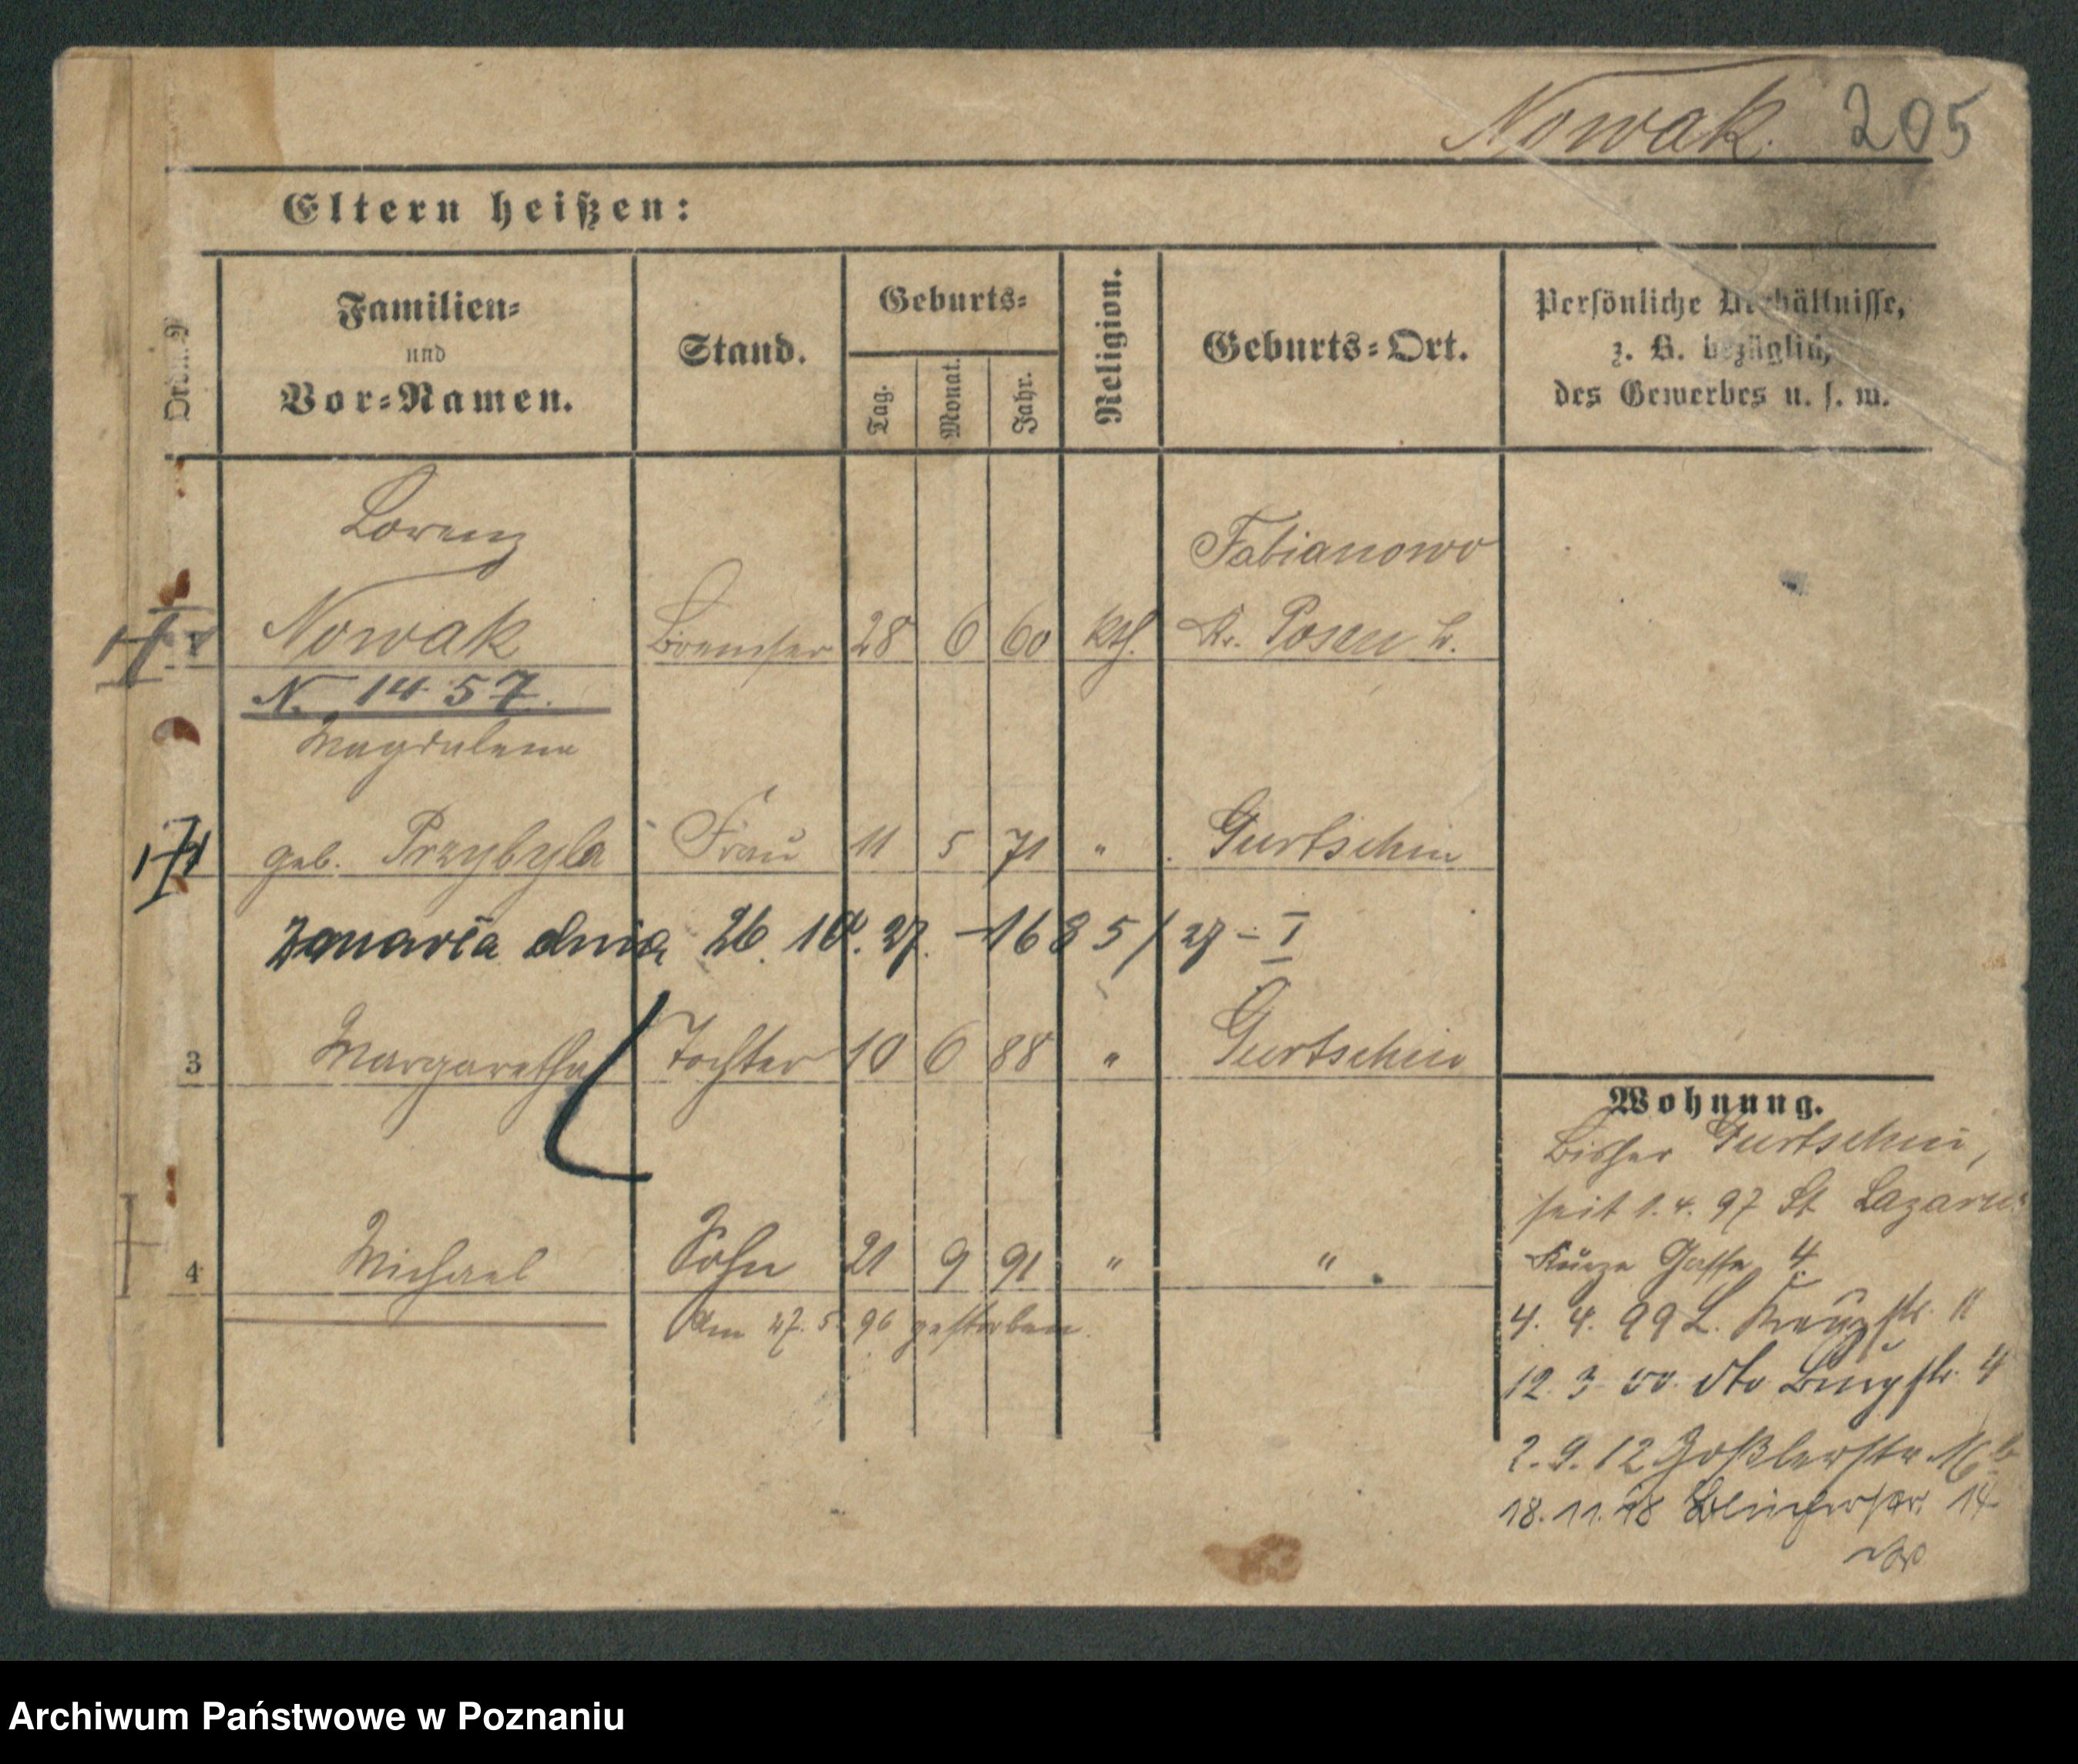 Nowak. 205
Eltern heißen:
Ordn. N
Familien-
und
Vor-Namen.
Stand.
Geburts-
Tag.
Monat.
Jahr.
Religion.
Geburts-Ort.
Persönliche Verhältnisse,
z. B. bezüglich
des Gewerbes u. s. w.
Lorenz
Nowak Bremser 28 6 60 kth. Fabianowo
Kr. Posen W.
N. 1457.
Magdalena
geb. Przybyla Frau 11 5 71 " Gurtschin
Zmarła dnia 26. 10. 27. - 1685/27 - I
3 Margaretha Tochter 10 6 88 " Gurtschin
4 Michael Sohn 21 9 91 " "
Am 27. 5. 96 gestorben.
Wohnung.
Bisher Gurtschin,
seit 1. 4. 97 St Lazarus
Kurze Gasse 4.
4. 4. 99 L. 11
12. 3. 00. dto Burgstr. 4
2. 9. 12 Goßlerstr. 16
18. 11. 18 14
Archiwum Państwowe w Poznaniu